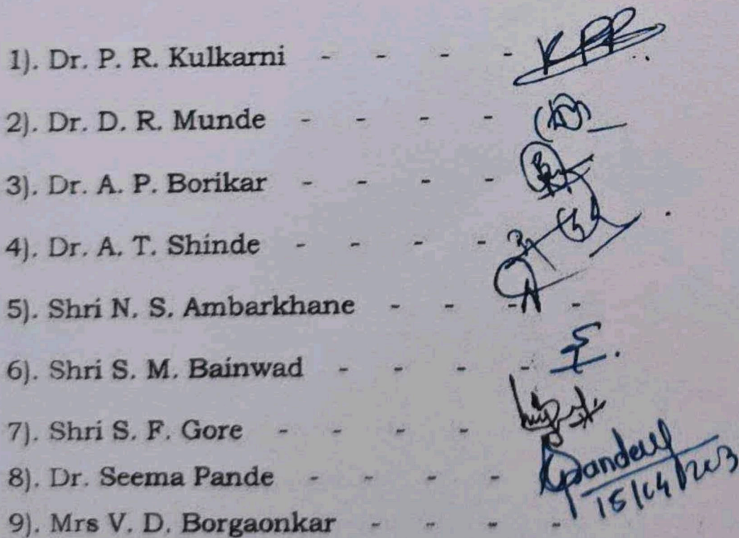 1). Dr. P. R. Kulkarni - - - - KPR
2). Dr. D. R. Munde - - - -
3). Dr. A. P. Borikar - - - -
4). Dr. A. T. Shinde - - - -
5). Shri N. S. Ambarkhane - - - -
6). Shri S. M. Bainwad - - - -
7). Shri S. F. Gore - - - -
8). Dr. Seema Pande - - - -
9). Mrs V. D. Borgaonkar - - - -